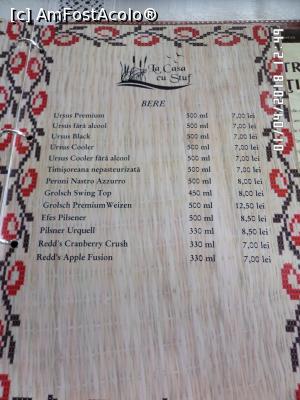 [c] AmFostAcolo®
La Casa
cu Stuf
BERE
Ursus Premium 500 ml 7,00 lei
Ursus fără alcool 500 ml 7,00 lei
Ursus Black 500 ml 7,00 lei
Ursus Cooler 500 ml 7,00 lei
Ursus Cooler fără alcool 500 ml 7,00 lei
Timișoreana nepasteurizată 500 ml 7,00 lei
Peroni Nastro Azzurro 500 ml 8,00 lei
Grolsch Swing Top 450 ml 8,00 lei
Grolsch Premium Weizen 500 ml 12,50 lei
Efes Pilsener 500 ml 8,50 lei
Pilsner Urquell 330 ml 8,50 lei
Redd's Cranberry Crush 330 ml 7,00 lei
Redd's Apple Fusion 330 ml 7,00 lei